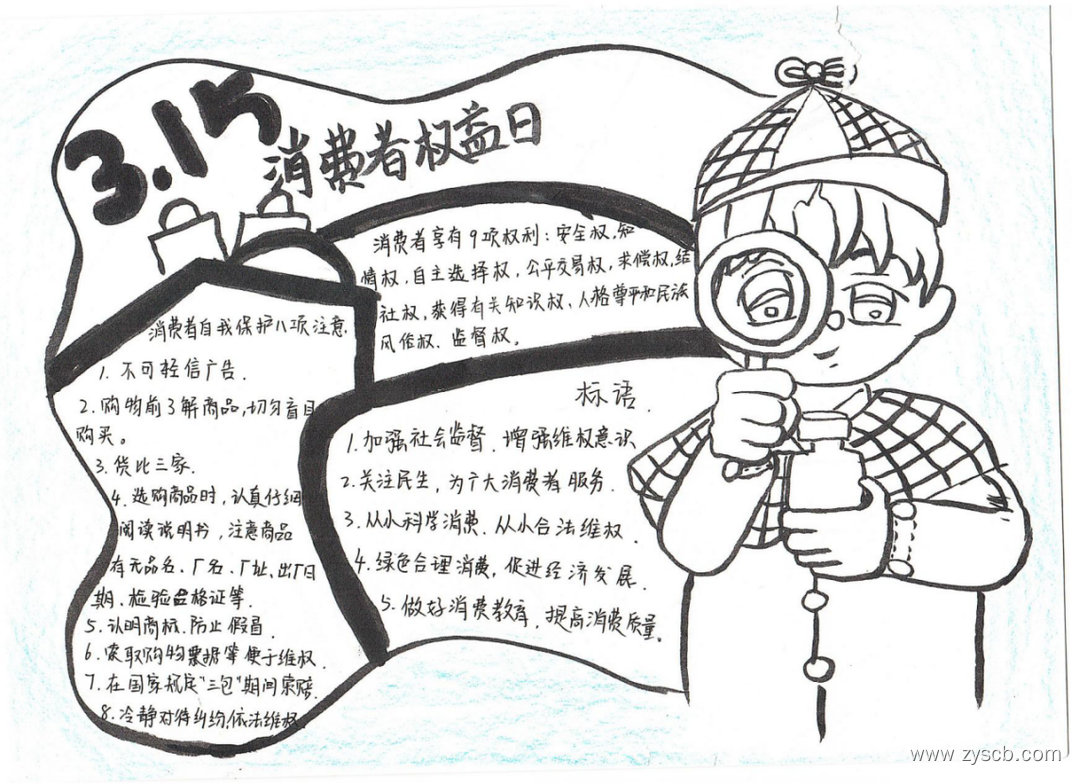 3.15
消费者权益日
消费者享有9项权利：安全权，知
情权，自主选择权，公平交易权，求偿权，结
社权，获得有关知识权、人格尊严和民族
风俗权、监督权。
消费者自我保护八项注意
1. 不可轻信广告.
2. 购物前了解商品，切勿盲目
购买。
3. 货比三家.
4. 选购商品时，认真仔细
阅读说明书，注意商品
有无品名、厂名、厂址、出厂日
期、检验合格证等.
5. 认明商标、防止假冒.
6. 索取购物票据等便于维权.
7. 在国家规定“三包”期间索赔.
8. 冷静对待纠纷，依法维权.
标语.
1. 加强社会监督、增强维权意识
2. 关注民生，为广大消费者服务.
3. 从小科学消费、从小合法维权.
4. 绿色合理消费，促进经济发展.
5. 做好消费教育，提高消费质量。
www.zyscb.com